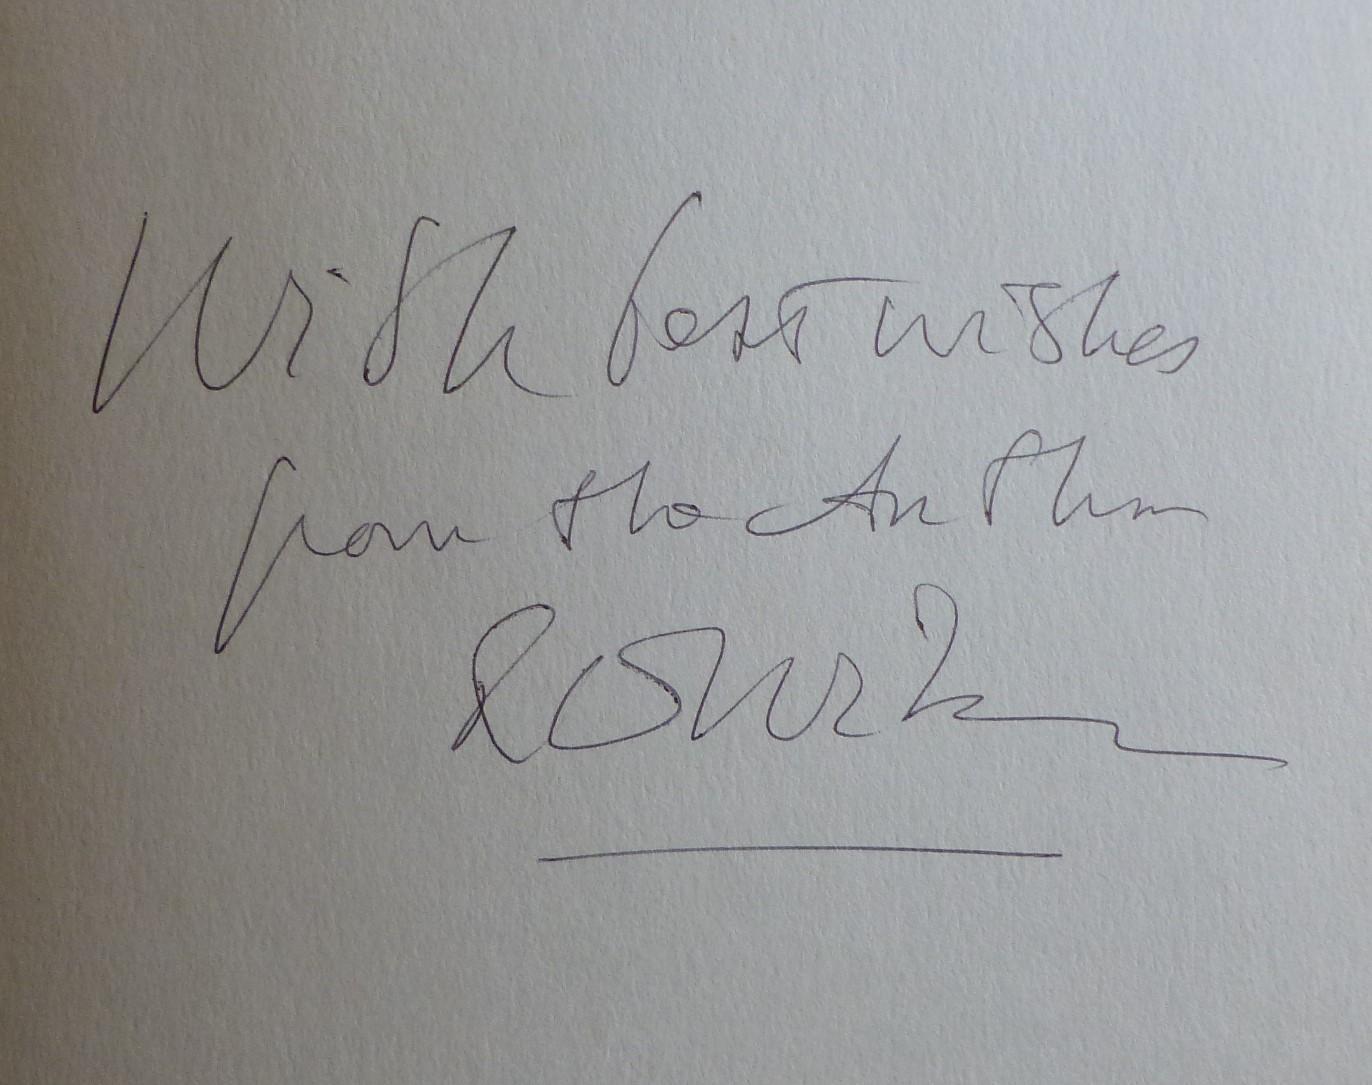 With best wishes
from the Author